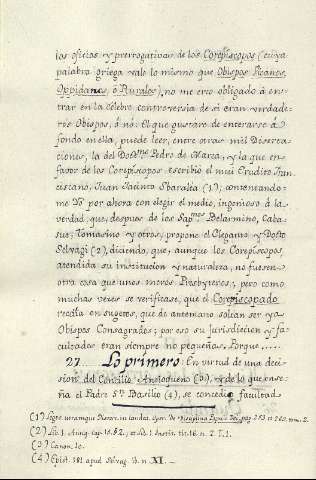 los oficios y prerrogativas de los Corepiscopos (cuya
palabra griega valo lo mismo que Obispos Vicanos,
Oppidanos, ó Rurales), no me creo obligado à en-
trar en la célebre controversia de si eran verdade-
ros Obispos, ó nó. El que gustáre de enterarse á
fondo en ella, puede leer, entre otras mil Diserta-
ciones, la del Pedro de Marca, y la que en
favor de los Corepíscopos escribió el mui Erudito Fran-
ciscano, Juan Jacinto Sbaralea (1); contentando-
me Yo por ahora con elegir el medio, ingenioso á la
verdad, que, despues de los Belarmino, Caba-
sue, Tomasino y otros, propone el Clegamo y Docto
Selvagi (2), diciendo, que, aunque los Corepíscopos,
atendida su institucion y naturaleza, no fuesen
otra cosa que unos meros Presbyteros; pero como
muchas veces se verificase, que el Corepiscopado
recaía en sugetos, que de antemano solian ser ya
Obispos Consagrados; por eso su jurisdiccion y fa-
cultades eran siempre no pequeñas. Porque....
27. Lo primero. En virtud de una deci-
sion del Concilio (3), y de lo que ense-
ña el Padre Sn Basilio (4), se concedió facultad
(1) pag. 253 et 260. num. 2.
(2) Lib. 1. Antiq. cap. 18. § 2. et Lib. 1. Instit. tit. 16. n. 7. T. 1.
(3) Canon. 10.
(4) Epist. 181 apud Selvag. ib. n. XI. —